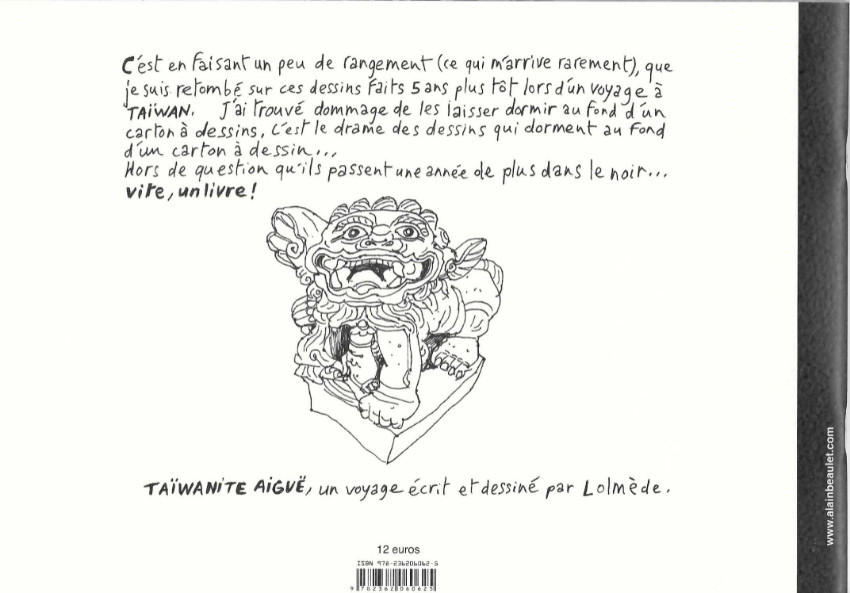 C'est en faisant un peu de rangement (ce qui m'arrive rarement), que
je suis retombé sur ces dessins faits 5 ans plus tôt lors d'un voyage à
TAÏWAN. J'ai trouvé dommage de les laisser dormir au fond d'un
carton à dessins, C'est le drame des dessins qui dorment au fond
d'un carton à dessin...
Hors de question qu'ils passent une année de plus dans le noir...
vite, un livre!
TAÏWANITE AIGUË, un voyage écrit et dessiné par Lolmède.
12 euros
ISBN 978-236206062-5
9782362060625
www.alainbeaulet.com